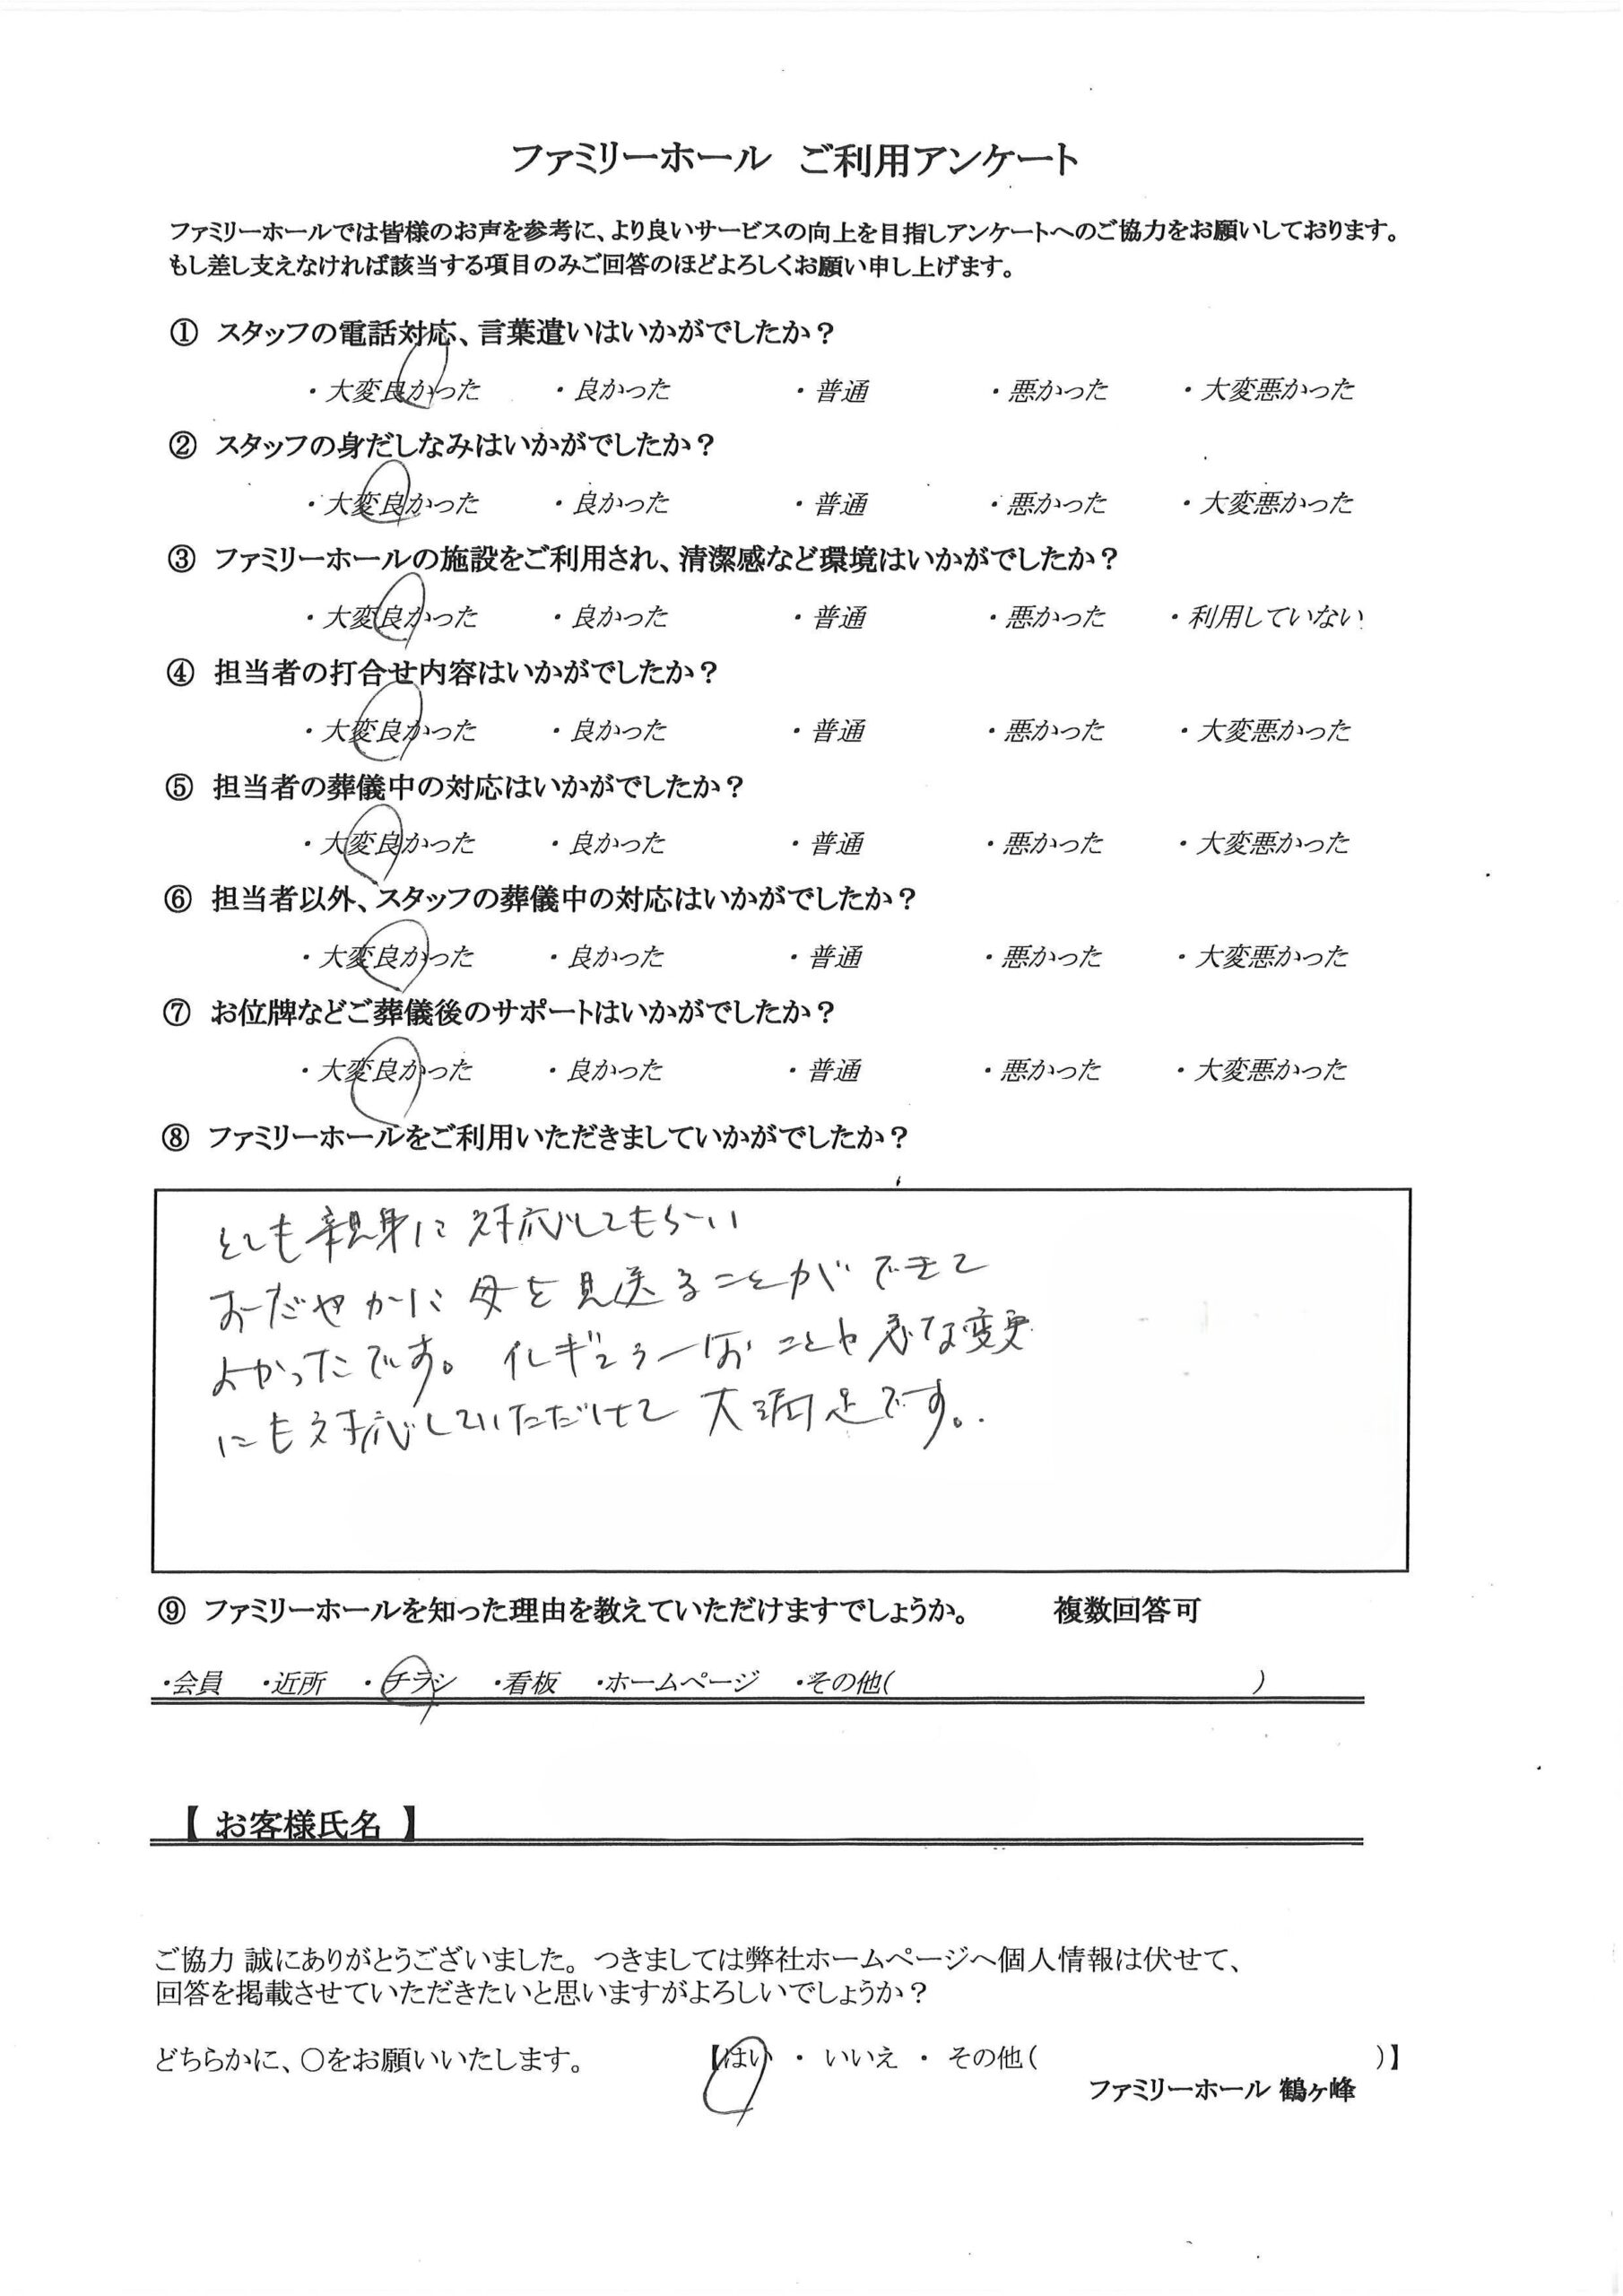 ファミリーホール ご利用アンケート
ファミリーホールでは皆様のお声を参考に、より良いサービスの向上を目指しアンケートへのご協力をお願いしております。
もし差し支えなければ該当する項目のみご回答のほどよろしくお願い申し上げます。
① スタッフの電話対応、言葉遣いはいかがでしたか？
・大変良かった ・良かった ・普通 ・悪かった ・大変悪かった
② スタッフの身だしなみはいかがでしたか？
・大変良かった ・良かった ・普通 ・悪かった ・大変悪かった
③ ファミリーホールの施設をご利用され、清潔感など環境はいかがでしたか？
・大変良かった ・良かった ・普通 ・悪かった ・利用していない
④ 担当者の打合せ内容はいかがでしたか？
・大変良かった ・良かった ・普通 ・悪かった ・大変悪かった
⑤ 担当者の葬儀中の対応はいかがでしたか？
・大変良かった ・良かった ・普通 ・悪かった ・大変悪かった
⑥ 担当者以外、スタッフの葬儀中の対応はいかがでしたか？
・大変良かった ・良かった ・普通 ・悪かった ・大変悪かった
⑦ お位牌などご葬儀後のサポートはいかがでしたか？
・大変良かった ・良かった ・普通 ・悪かった ・大変悪かった
⑧ ファミリーホールをご利用いただきましていかがでしたか？
とても親身に対応してもらい
おだやかに母を見送ることができて
よかったです。イレギュラーなことや急な変更
にも対応していただけて大満足です。
⑨ ファミリーホールを知った理由を教えていただけますでしょうか。 複数回答可
・会員 ・近所 ・チラシ ・看板 ・ホームページ ・その他( )
【 お客様氏名 】
ご協力 誠にありがとうございました。つきましては弊社ホームページへ個人情報は伏せて、
回答を掲載させていただきたいと思いますがよろしいでしょうか？
どちらかに、〇をお願いいたします。 【はい ・ いいえ ・ その他( )】
ファミリーホール 鶴ヶ峰